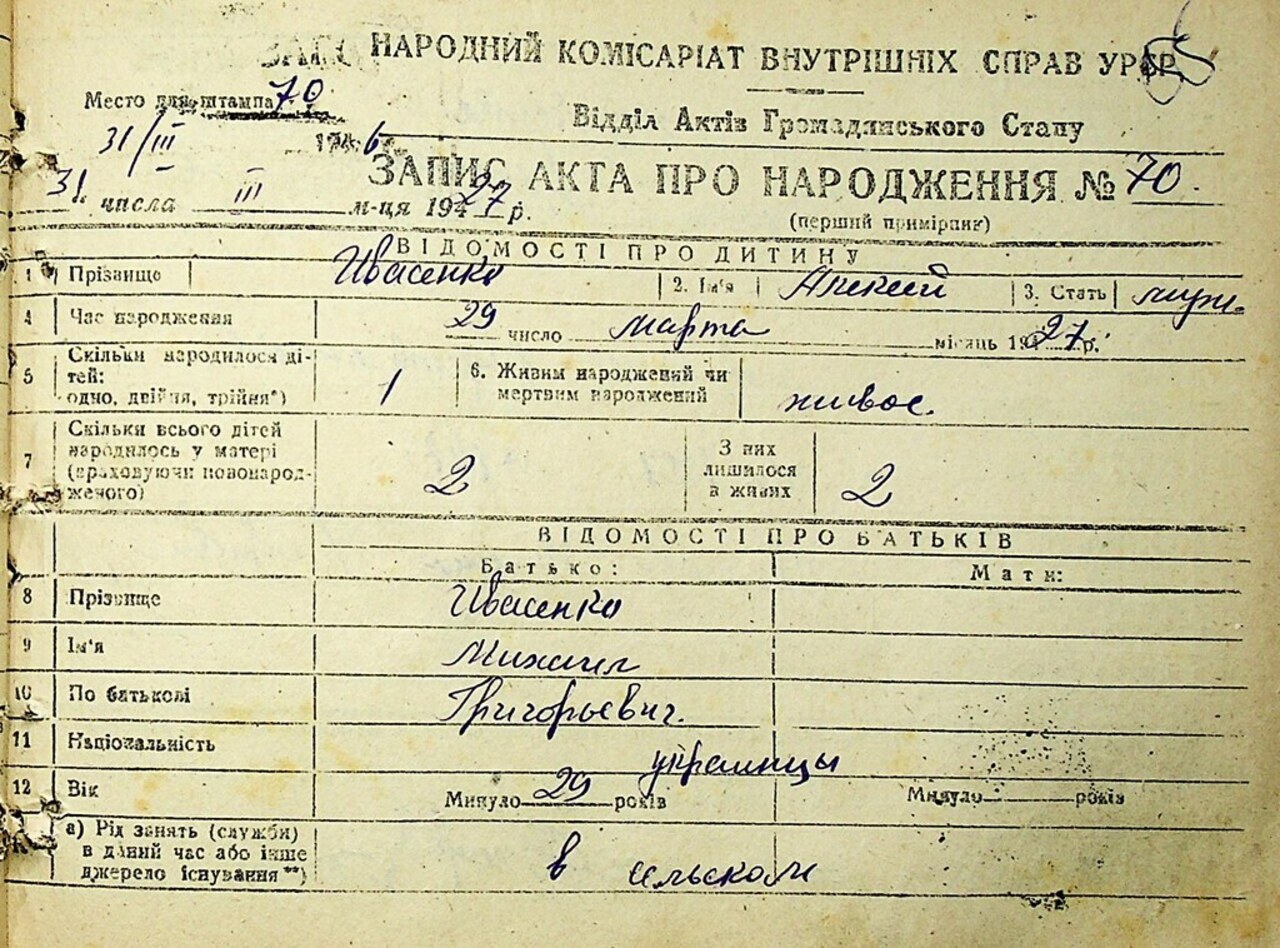 НАРОДНИЙ КОМІСАРІАТ ВНУТРІШНІХ СПРАВ УРСР
Место для штампа 70
Відділ Актів Громадянського Стану
31/III 1946 г.
ЗАПИС АКТА ПРО НАРОДЖЕННЯ № 70.
31 числа III м-ця 1927 р.
(перший примірник)
ВІДОМОСТІ ПРО ДИТИНУ
1 Прізвище Ивасенко 2. Ім'я Алексей 3. Стать муж.
4 Час народження 29 число марта місяць 1927 р.
5 Скільки народилося дітей: одно, двійня, трійня*) 1 6. Живим народжений чи мертвим народжений живое.
7 Скільки всього дітей народилось у матері (враховуючи новонародженого) 2 З них лишилося в живих 2
ВІДОМОСТІ ПРО БАТЬКІВ
Батько: Мати:
8 Прізвище Ивасенко
9 Ім'я Михаил
10 По батькові Григорьевич.
11 Національність украинцы
12 Вік Минуло 29 років Минуло років
а) Рід занять (служби)
в даний час або інше
джерело існування**) в сельском